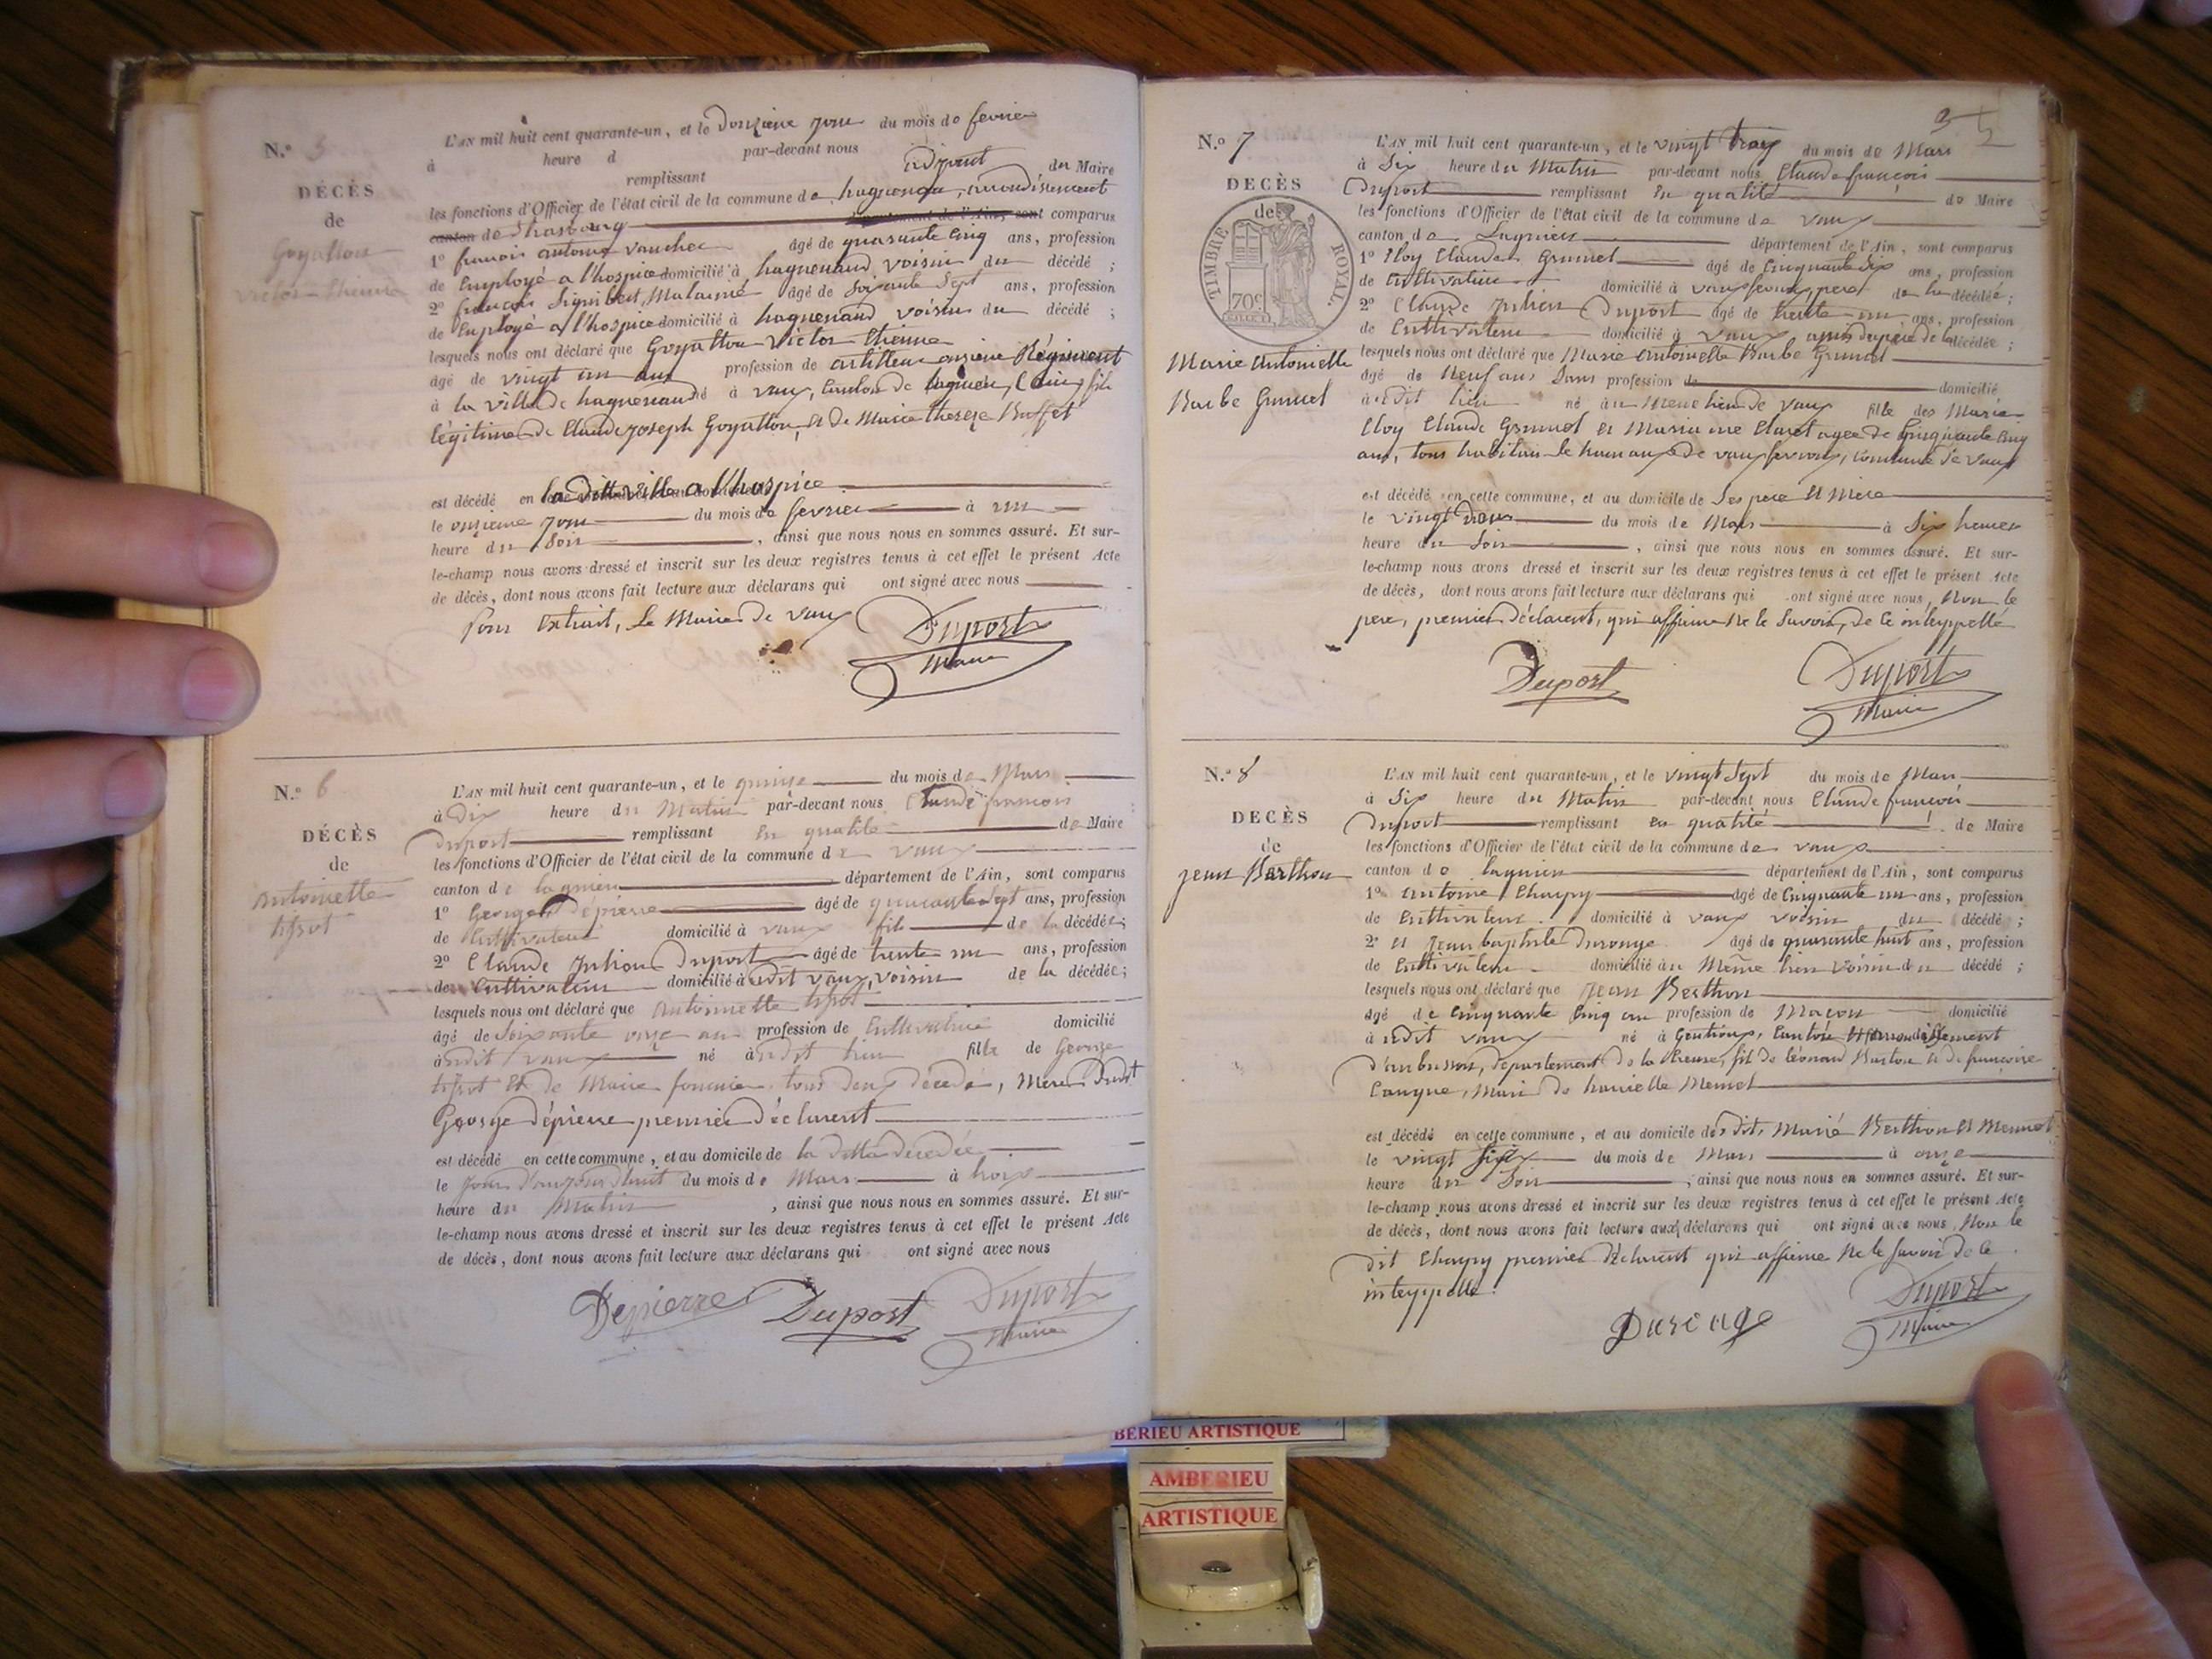 N.º 5
DÉCÈS
de
Goyatton
Victor Etienne
L'AN mil huit cent quarante-un, et le Douzieme jour du mois de fevrier
à heure d par-devant nous
remplissant adjoint du Maire
les fonctions d'Officier de l'état civil de la commune de haguenau, arrondissement
canton de Strasbourg département de l'Ain, sont comparus
1º françois antoine vaucher âgé de quarante cinq ans, profession
de Employé a l'hospice domicilié à haguenaud voisin du décédé ;
2º françois Sigisbert, âgé de Soixante Sept ans, profession
de Employé a l'hospice domicilié à haguenaud voisin du décédé ;
lesquels nous ont déclaré que Goyatton Victor Etienne
âgé de vingt un ans profession de artilleur onzieme Régiment
à la ville de haguenaud né à vaux, Canton de lagnieu, (ain) fils
légitime de Claude joseph Goyatton, et de Marie thereze Buffet
est décédé en la ditte ville a l'hospice
le onzieme jour du mois de fevrier à un
heure du Soir, ainsi que nous nous en sommes assuré. Et sur-
le-champ nous avons dressé et inscrit sur les deux registres tenus à cet effet le présent Acte
de décès, dont nous avons fait lecture aux déclarans qui ont signé avec nous
Pour Extrait, Le Maire de vaux
Duport
Maire
N.º 6
DÉCÈS
de
Antoinette
tifrot
L'AN mil huit cent quarante-un, et le quinze du mois de Mars
à Dix heure du Matin par-devant nous Claude françois
Duport remplissant En qualité de Maire
les fonctions d'Officier de l'état civil de la commune de vaux
canton de lagnieu département de l'Ain, sont comparus
1º George Dépierre âgé de quarante Sept ans, profession
de Cultivateur domicilié à vaux fils de la décédée ;
2º Claude Julien Duport âgé de trente un ans, profession
de Cultivateur domicilié à udit vaux, voisin de la décédée ;
lesquels nous ont déclaré que Antoinette tifrot
âgé de Soixante onze ans profession de Cultivatrice domicilié
à udit vaux né à udit lieu fille de George
tifrot Et de Marie fournier tous deux décédé, Mere dudit
George Dépierre premier Déclarent
est décédé en cette commune, et au domicile de la ditte décédée
le jour D'aujourd'huit du mois de Mars à trois
heure du Matin, ainsi que nous nous en sommes assuré. Et sur-
le-champ nous avons dressé et inscrit sur les deux registres tenus à cet effet le présent Acte
de décès, dont nous avons fait lecture aux déclarans qui ont signé avec nous
Depierre Duport Duport
Maire
N.º 7
DÉCÈS
de
TIMBRE ROYAL
70c
Marie Antoinette
Barbe Grumel
L'AN mil huit cent quarante-un, et le vingt trois du mois de Mars
à Six heure du Matin par-devant nous Claude françois
Duport remplissant En qualité de Maire
les fonctions d'Officier de l'état civil de la commune de vaux
canton de Lagnieu département de l'Ain, sont comparus
1º Eloy Claude Grumel âgé de Cinquante Six ans, profession
de Cultivateur domicilié à vaux fevroux, pere de la décédée ;
2º Claude Julien Duport âgé de trente un ans, profession
de Cultivateur domicilié à vaux de la décédée ;
lesquels nous ont déclaré que Marie Antoinette Barbe Grumel
âgé de Neuf ans Sans profession de domicilié
à udit lieu né au Meme lieu de vaux fille des Marié
Eloy Claude Grumel et Marianne Claret agée de Cinquante Cinq
ans, tous habitan le hamaux de vaux fevroux, commune de vaux
est décédé en cette commune, et au domicile de Ses pere et Mere
le vingt Deux du mois de Mars à Six heures
heure du Soir, ainsi que nous nous en sommes assuré. Et sur-
le-champ nous avons dressé et inscrit sur les deux registres tenus à cet effet le présent Acte
de décès, dont nous avons fait lecture aux déclarans qui ont signé avec nous, Non le
pere, premier Déclarent, qui affirme Ne le Savoir, de ce inteyppellé
Duport Duport
Maire
N.º 8
DÉCÈS
de
jean Berthon
L'AN mil huit cent quarante-un, et le vingt Sept du mois de Mars
à Six heure du Matin par-devant nous Claude françois
Duport remplissant En qualité de Maire
les fonctions d'Officier de l'état civil de la commune de vaux
canton de lagnieu département de l'Ain, sont comparus
1º Antoine Chaypy âgé de Cinquante un ans, profession
de Cultivateur domicilié à vaux voisin du décédé ;
2º et Jean baptiste Durouge âgé de quarante huit ans, profession
de Cultivateur domicilié au Même lieu voisin du décédé ;
lesquels nous ont déclaré que Jean Berthon
âgé de Cinquante Cinq an profession de Maçon domicilié
à udit vaux né à Gentioux, Canton et arrondissement
d'aubusson, departement de la Creuse, fils de léonard Burton et de françoise
Langue, Mari de Mermet
est décédé en cette commune, et au domicile des dits Marié Berthon et Mermet
le vingt Six du mois de Mars à onze
heure du Soir, ainsi que nous nous en sommes assuré. Et sur-
le-champ nous avons dressé et inscrit sur les deux registres tenus à cet effet le présent Acte
de décès, dont nous avons fait lecture aux déclarans qui ont signé avec nous, Non le
dit Chaypy premier Déclarent qui affirme Ne le Savoir de ce
inteyppellé.
Durouge Duport
Maire
BERIEU ARTISTIQUE
AMBERIEU
ARTISTIQUE